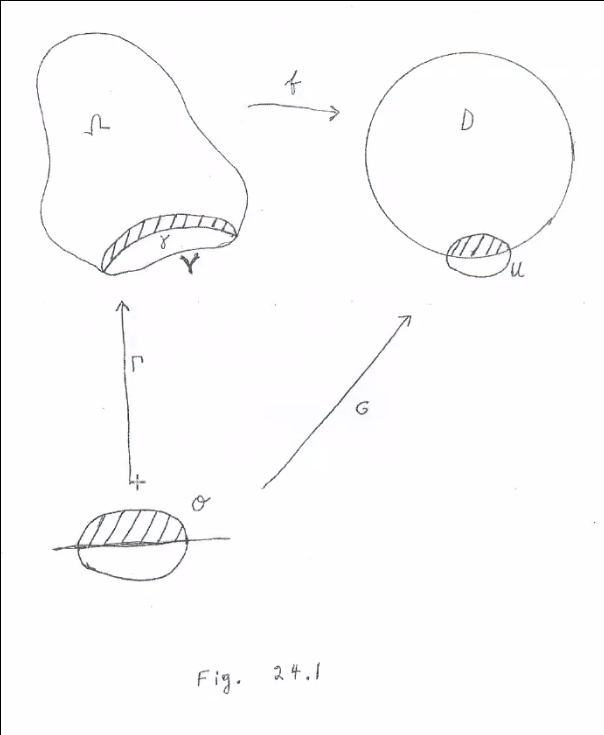 f
Ω
D
γ
V
U
Γ
G
O
Fig. 24.1